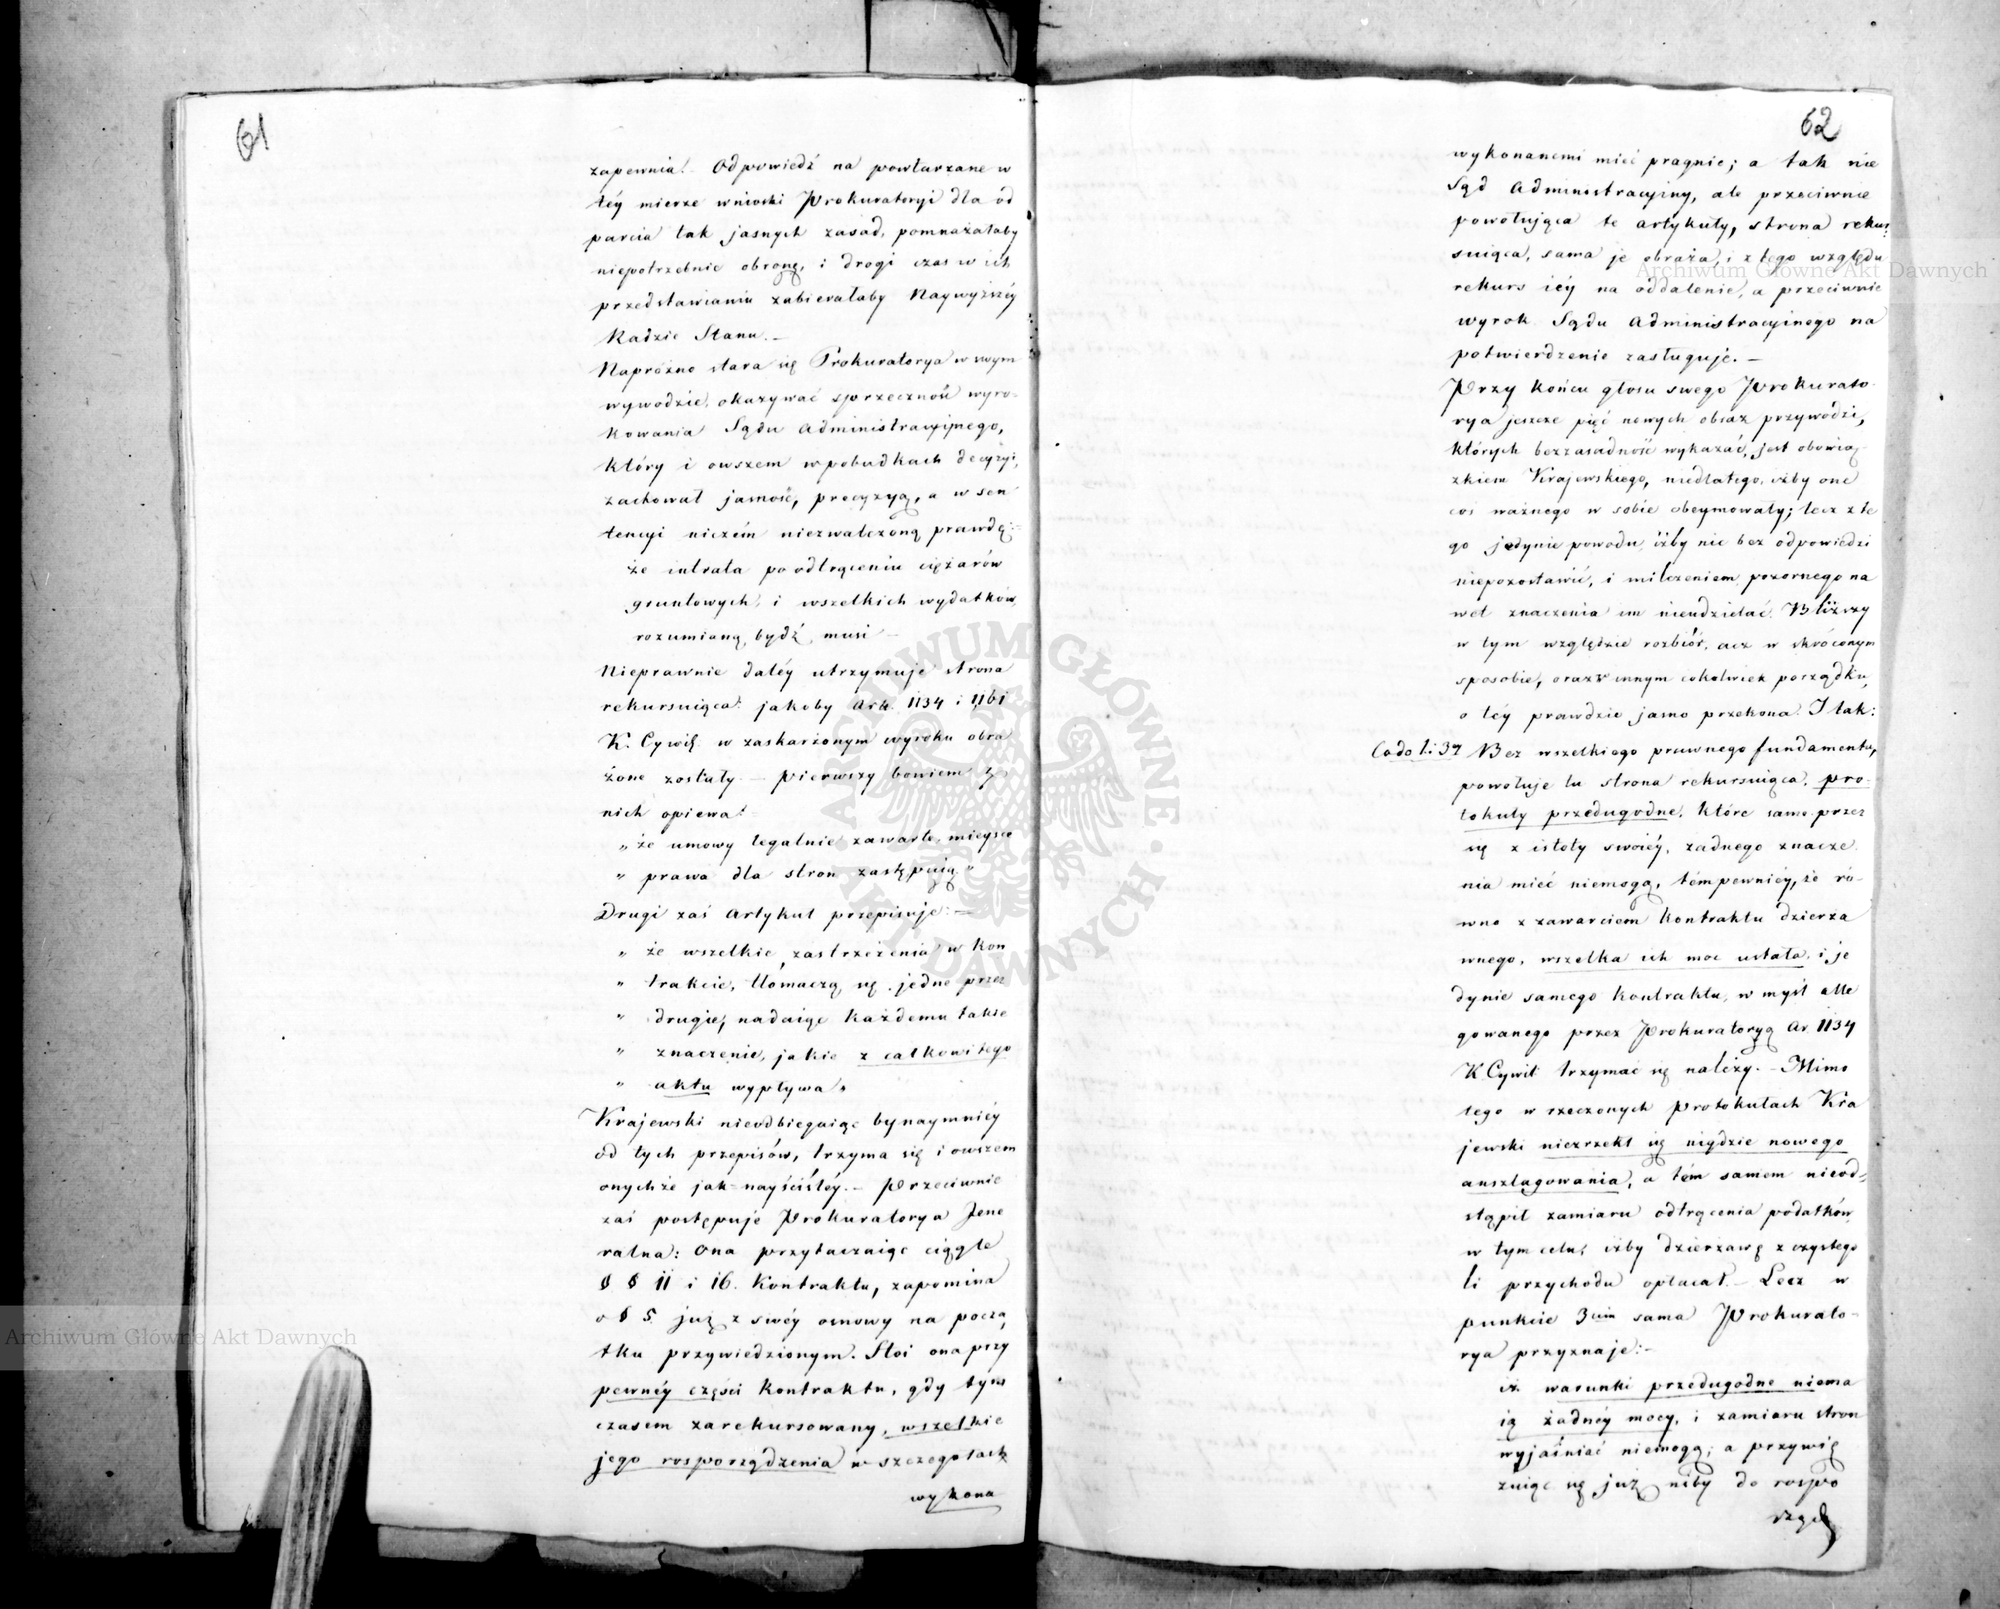 61
zapewnia! Odpowiedź na powtarzane w
téy mierze wnioski Prokuratoryi dla od
parcia tak jasnych zasad, pomnażałaby
niepotrzebnie obronę, i drogi czas w ich
przedstawianiu zabierałaby Naywyższéy
Radzie Stanu. —
Napróżno stara się Prokuratorya w swym
wywodzie, okazywać sprzeczność wyro-
kowania Sądu Administracyjnego,
który i owszem w pobudkach decyzyi,
zachował jasność, precyzyą, a w sen
tencyi niczém niezwalczoną prawdę:-
że intrata po odtrąceniu ciężarów
gruntowych, i wszelkich wydatków,
rozumianą bydź musi —
Nieprawnie daléy utrzymuje strona
rekursuiąca: jakoby Art. 1134 i 1161
K. Cywil. w zaskarżonym wyroku obra
żone zostały — pierwszy bowiem z
nich opiewa:
„ że umowy legalnie zawarte, mieysce
„ prawa dla stron zastępują „
Drugi zaś Artykuł przepisuje: —
„ że wszelkie zastrzeżenia w kon
„ trakcie, tłómaczą się jedne przez
„ drugie, nadaiąc każdemu takie
„ znaczenie, jakie z całkowitego
„ aktu wypływa „
Krajewski nieodbiegaiąc bynaymniéy
od tych przepisów, trzyma się i owszem
onychże jak-nayściśléy. — Przeciwnie
zaś postępuje Prokuratorya Jene
ralna: Ona przytaczaiąc ciągle
§ § 11 i 16. Kontraktu, zapomina
o § 5. już z swéy osnowy na począ
tku przywiedzionym. Stoi ona przy
pewnéy części kontraktu, gdy tym
czasem zarekursowany, wszelkie
jego rosporządzenia w szczegółach
wykona
62
wykonanemi mieć pragnie; a tak nie
Sąd Administracyiny, ale przeciwnie
powołująca te artykuły, strona rekur:
suiąca, sama je obraża, i z tego względu
rekurs iéy na oddalenie, a przeciwnie
wyrok Sądu Administracyinego na
potwierdzenie zasługuje. —
Przy końcu głosu swego Prokurato-
rya jeszcze pięć nowych obraz przywodzi,
których bezzasadność wykazać, jest obowią-
zkiem Krajewskiego, niedlatego, iżby one
coś ważnego w sobie obeymowały; lecz z te
go jedynie powodu, iżby nic bez odpowiedzi
niepozostawić, i milczeniem pozornego na
wet znaczenia im nieudzielać. Bliższy
w tym względzie rozbiór, acz w skróconym
sposobie, oraz w innym cokolwiek porządku,
o téy prawdzie jasno przekona. I tak:
Co do l: 3ą Bez wszelkiego prawnego fundamentu,
powołuje tu strona rekursuiąca, pro-
tokuły przedugodne, które same przez
się z istoty swoiéy, żadnego znacze
nia mieć niemogą, témpewniéy, że ró-
wno z zawarciem kontraktu dzierża
wnego, wszelka ich moc ustała, i je
dynie samego kontraktu, w myśl alle
gowanego przez Prokuratoryą Ar. 1134
K. Cywil trzymać się należy. — Mimo
tego w rzeczonych protokułach Kra
jewski niezrzekł się nigdzie nowego
anszlagowania, a tém samem nieod-
stąpił zamiaru odtrącenia podatków,
w tym celu, iżby dzierżawę z czystego
li przychodu opłacał. — Lecz w
punkcie 3cim sama Prokurato-
rya przyznaje: —
iż warunki przedugodne niema
ią żadnéy mocy, i zamiaru stron
wyjaśniać niemogą; a przywię
zuiąc się już niby do rospo
rządz